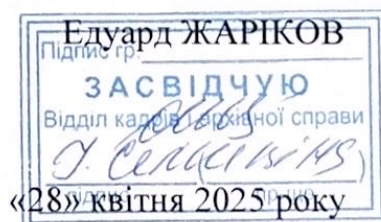 Едуард ЖАРІКОВ
Підпис гр.
ЗАСВІДЧУЮ
Відділ кадрів і архівної справи
«28» квітня 2025 року